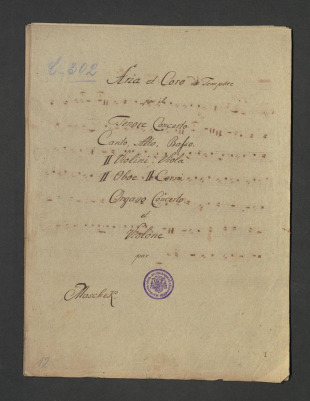 C. 302
Aria et Coro de Tempore
Tenore Concerto
Canto, Alto, Basso
II Violini Viola
II Oboe II Corni
Organo Concerto
et
Violone
per
Maschek